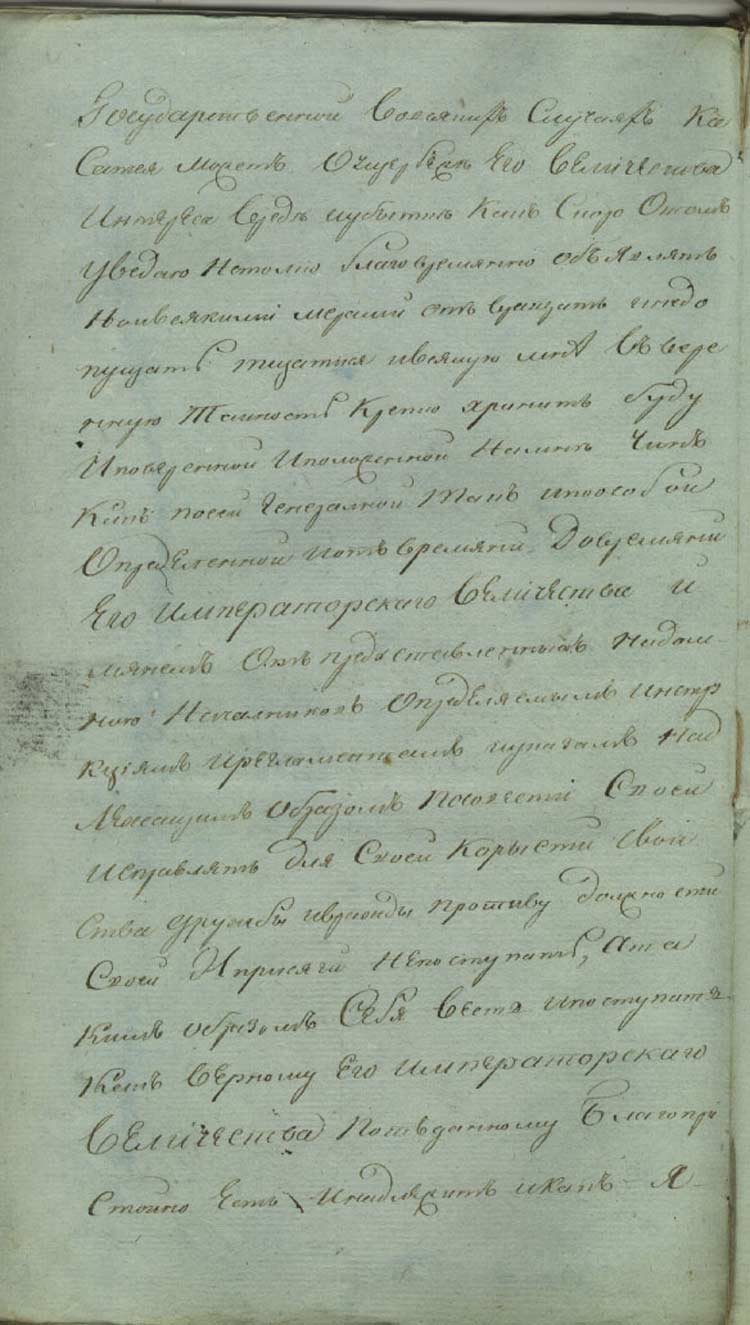 Государственной вовсяких случаях ка
сатся может о ущербеже Его Величества
интереса вреде иубытке какъ скоро отомъ
уведаю нетокмо благовремянно объявлять
ноивсякими мерами отвращать инедо
пущать тщатися ивсякую мне въвере
нную таиность крепко хранить буду
Иповеренной иположенной намне чинъ
какъ посей генералной такъ ипоособой
определенной иотвремяни довремяни
Его императорскаго Величества и
мянемъ отъ предоставленныхъ надом
ною началниковъ определяемымъ инстр
кціямъ ирегламентамъ иуказамъ над
лежащимъ образомъ посовести своей
исправлять для своей корысти свой
ства дружбы ивражды противу должности
своей Иприсяги непоступать, ата
кимъ образомъ себя весть ипоступать
какъ верному Его императорскаго
Величества потъданному благопри
стойно есть инадлежитъ икакъ я